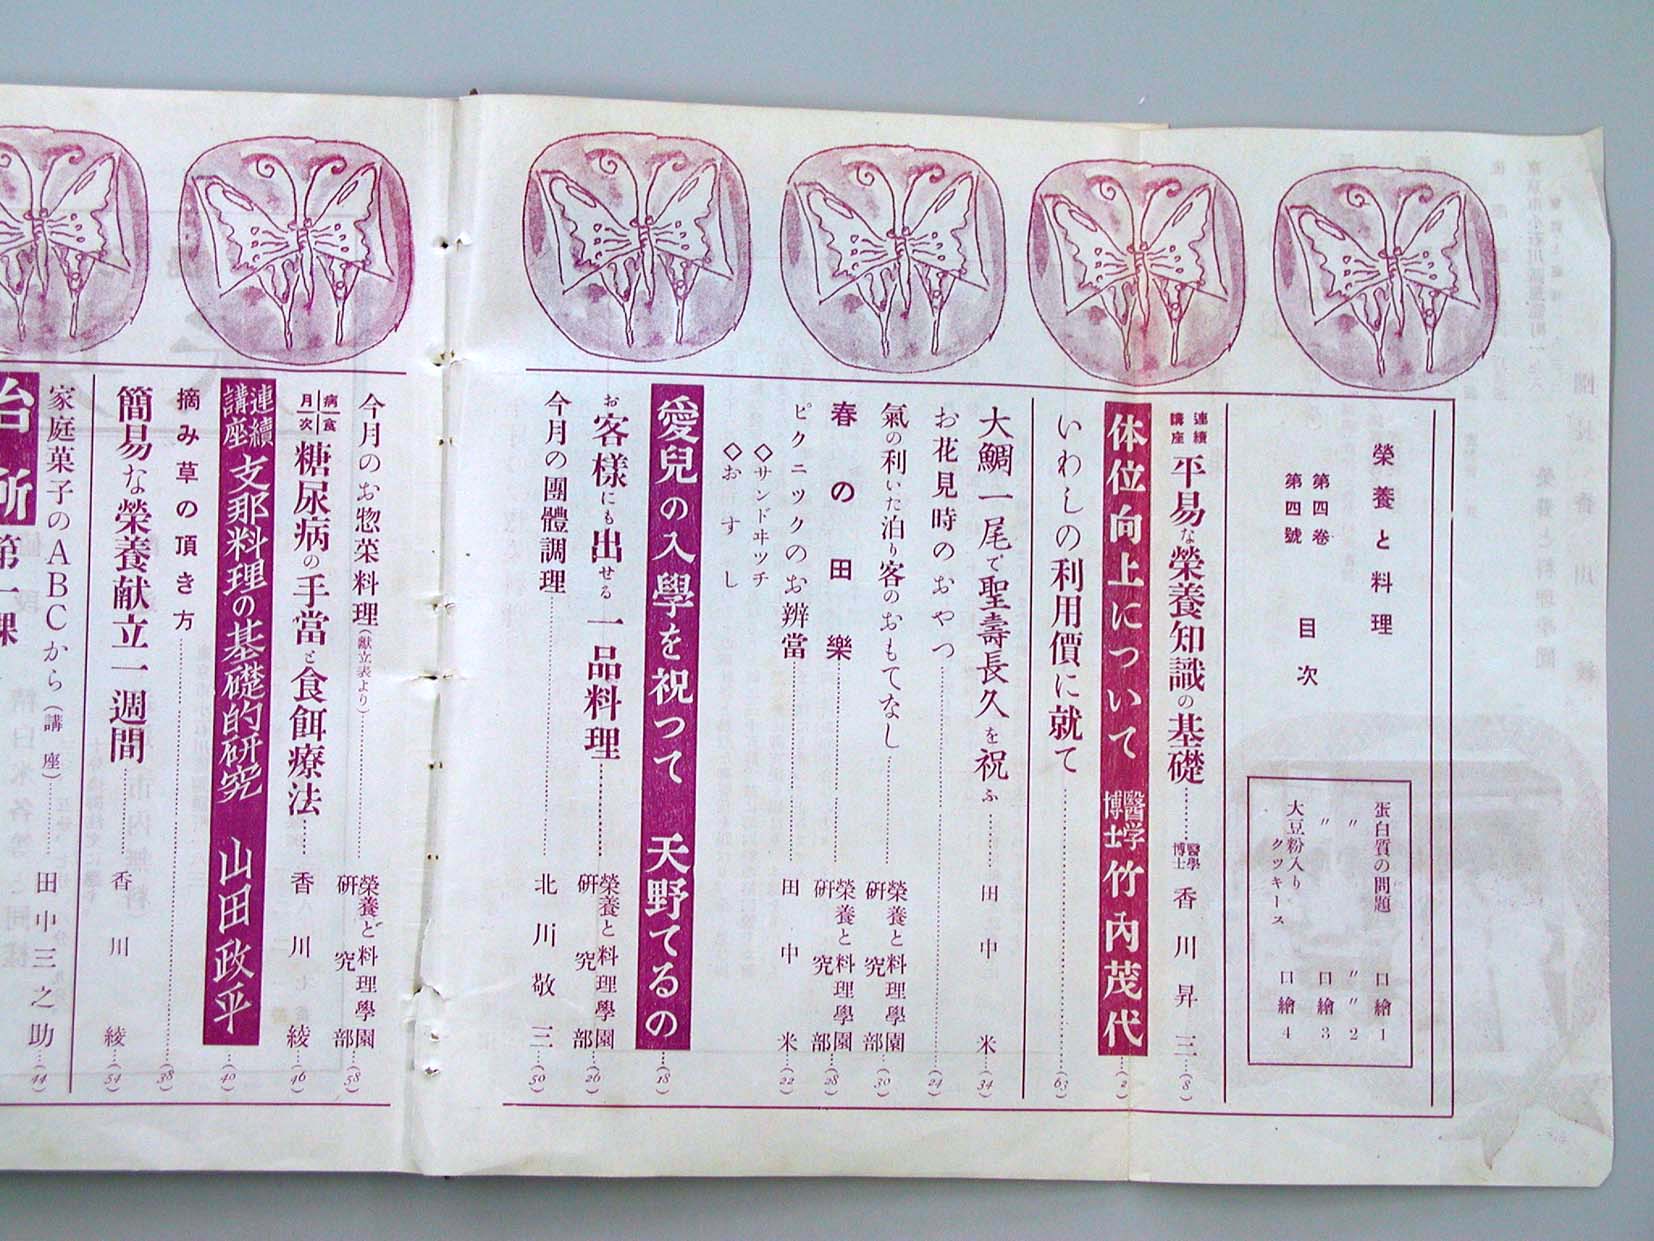 榮養と料理
第四卷
第四號
目次
蛋白質の問題 口繪1
〃 〃2
〃 口繪3
大豆粉入り
クツキース 口繪4
連續講座 平易な榮養知識の基礎……醫學博士 香川昇三…(8)
体位向上について 醫学博士 竹內茂代…(2)
いわしの利用價に就て…(63)
大鯛一尾で聖壽長久を祝ふ…田中米…(34)
お花見時のおやつ…(24)
氣の利いた泊り客のおもてなし…榮養と料理學園硏究部…(30)
春の田樂…榮養と料理學園硏究部…(28)
ピクニックのお辨當…田中米…(22)
◇サンドヰッチ
◇おすし
愛兒の入學を祝つて 天野てるの…(18)
お客樣にも出せる一品料理…榮養と料理學園硏究部…(26)
今月の團體調理…北川敬三…(50)
今月のお惣菜料理(献立表より)…榮養と料理學園硏究部…(58)
病食月次 糖尿病の手當と食餌療法…香川綾…(46)
連續講座 支那料理の基礎的研究 山田政平…(40)
摘み草の頂き方…(38)
簡易な榮養献立一週間…香川綾…(54)
家庭菓子のABCから(講座)…田中三之助…(44)
台所 第一課